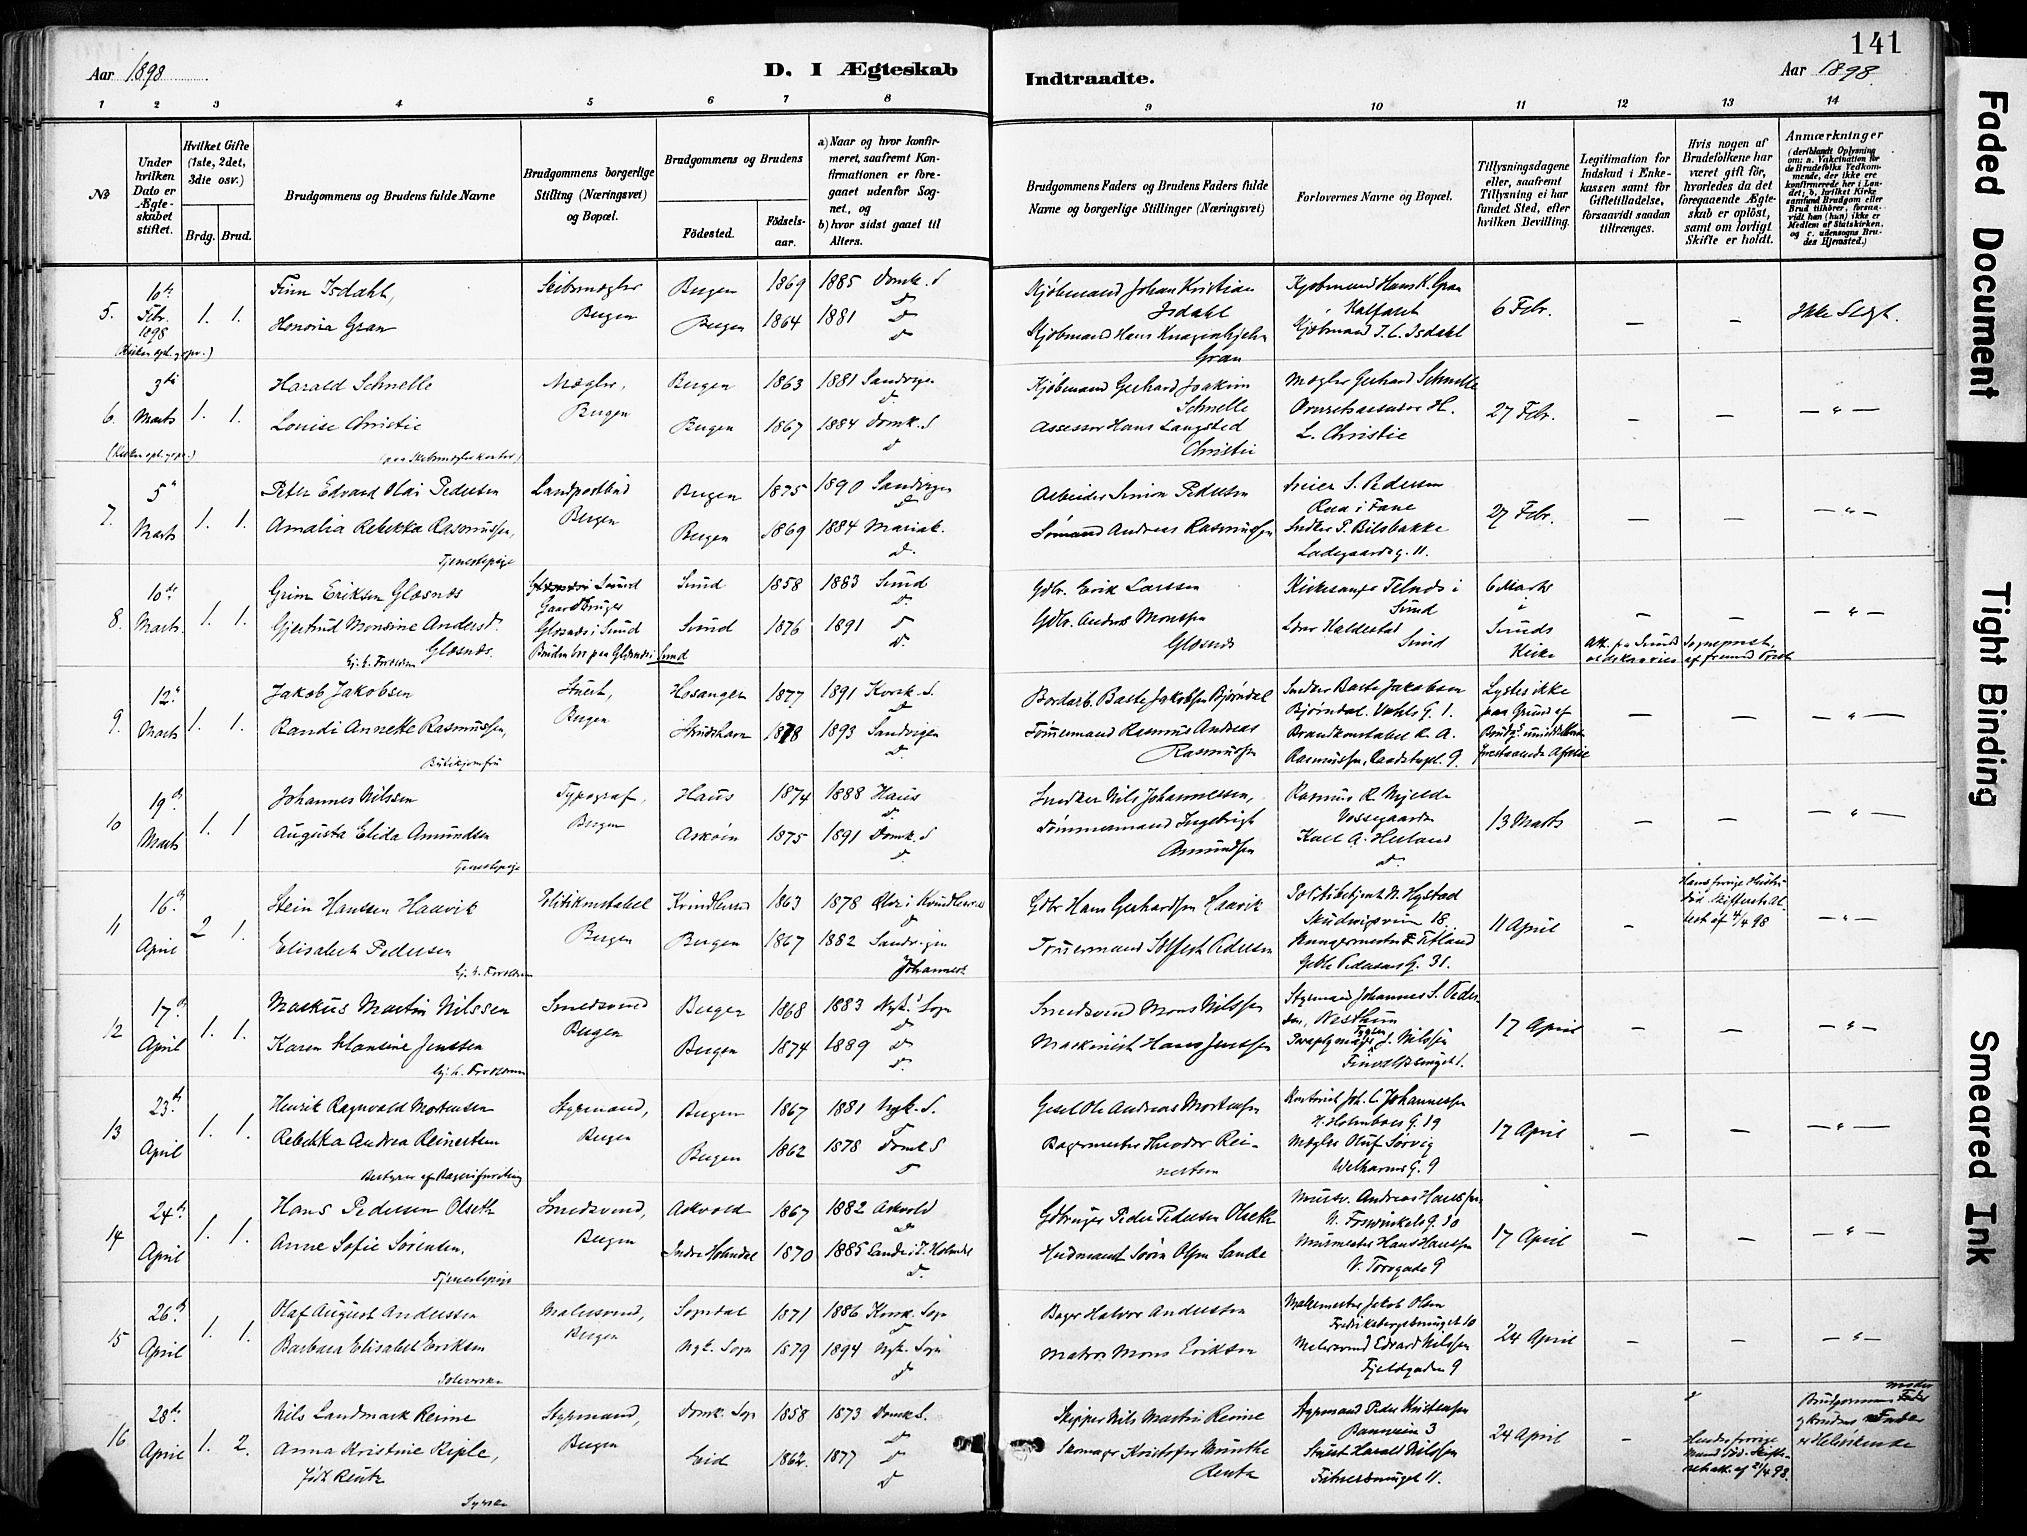 141
Aar 1898
D. I Ægteskab
Indtraadte.
Aar 1898
1 2 3 4 5 6 7 8 9 10 11 12 13 14
No
Under hvilken Dato er Ægteskabet stiftet.
Hvilket Gifte (1ste, 2det, 3die osv.)
Brdg. Brud.
Brudgommens og Brudens fulde Navne
Brudgommens borgerlige Stilling (Næringsvei) og Bopæl.
Brudgommens og Brudens
Fødested.
Fødselsaar.
a) Naar og hvor konfirmeret, saafremt Konfirmationen er foregaaet udenfor Sognet, og
b) hvor sidst gaaet til Alters.
Brudgommens Faders og Brudens Faders fulde Navne og borgerlige Stillinger (Næringsvei)
Forlovernes Navne og Bopæl.
Tillysningsdagene eller, saafremt Tillysning ei har fundet Sted, efter hvilken Bevilling.
Legitimation for Indskud i Enkekassen samt for Giftetilladelse, forsaavidt saadan tiltrænges.
Hvis nogen af Brudefolkene har været gift før, hvorledes da det foregaaende Ægteskab er opløst, samt om lovligt Skifte er holdt.
Anmærkninger
(deriblandt Oplysning om: a. Vakcination for de Brudefolks Vedkommende, der ikke ere konfirmerede her i Landet; b. hvilket Kirkesamfund Brudgom eller Brud tilhører, forsaavidt han (hun) ikke er Medlem af Statskirken, og c. udensogns Brudes Hjemsted.)
5. 10de Febr. 1898 1. 1. Finn Isdahl, Skibsmægler Bergen Bergen 1869 1885 Domk. S
Honoria Gran Bergen 1864 1881
Kjøbmand Johan Kristian Isdahl
Kjøbmand Hans Gran
Kjøbmand Hans K. Gran Kalfaret
Kjøbmand J. L. Isdahl
6 Febr. — — Ikke Slegt.
6. 3die Marts 1. 1. Harald Schnelle Mægler, Bergen Bergen 1863 1881 Sandvigen
Louise Christie Bergen 1867 1884 Domk. S
Kjøbmand Gerhard Joakim Schnelle
Assessor Hans Langsted Christie
Mægler Gerhard Schnelle
H. L. Christie
27 Febr. — — — " —
7. 5te Marts 1. 1. Peter Edvard Olai Pedersen Landpostbud Bergen Bergen 1875 1890 Sandvigen
Amalia Rebekka Rasmussen, Bergen 1869 1884 Mariak.
Tjenestepige
Arbeider Simon Pedersen
Sømand Andreas Rasmussen
S. Pedersen i Fane
Snedker P. Bilsbakke
Ladegaardsg. 11.
27 Febr. — — — " —
8. 10de Marts 1. 1. Grim Eriksen Glæsnæs Gaardbruger Glæsnæs i Sund Sund 1858 1883 Sund
Gjertrud Monsine Andersd. Glæsnæs. Sund 1876 1891
Hj. h. Forældren
Gdbr. Erik Larssen
Gdbr. Anders Monsen Glæsnæs
Kirkesanger Telnæs i Sund
Lars Kaldestad Sund
6 Marts i Sunds Kirke — — — " —
9. 12te Marts 1. 1. Jakob Jakobsen Stuert, Bergen Hosanger 1877 1891 Korsk. S.
Randi Annette Rasmussen, Skudeshavn 1878 1893 Sandvigen
Butikjomfru
Bordarb. Baste Jakobsen Bjørndal
Tømmermand Rasmus Andreas Rasmussen
Snedker Baste Jakobsen Bjørndal. G. 1.
Brandkonstabel R. A. Rasmussen, 9.
Lystes ikke paa Grund af Brudg.s umiddelbart forestaaende Afreise
— — — " —
10 19de Marts 1. 1 Johannes Nilssen Typograf, Bergen Haus 1874 1888 Haus
Augusta Elida Amundsen Askøen 1875 1891 Domk. S
Tjenestepige
Snedker Nils Johannessen,
Tømmermand Ingebrigt Amundsen
Rasmus R. Mjelde Vossegaarden
Karl A. Heiland
13 Marts — — — " —
11 16de April 2 1. Stein Hansen Haavik Politikonstabel Bergen Kvindherred 1863 1878 Kvindherred
Elisabeth Pedersen Bergen 1867 1882 Sandvigen Johannesk
Hj. h. Forældren
Gdbr Hans Gerhardsen Haavik
Tømermand Pedersen
Politibetjent N. Hystad 18.
F. Titland
Geble Pedersens G. 31.
11 April — Hans forrige Hustru død. Skifterets Attest af 4/4 98 — " —
12 17de April 1. 1. Markus Martin Nilssen Smedsvend Bergen Bergen 1868 1883 Nyk. Sogn
Karen Hansine Jenssen Bergen 1874 1889
Hj. h. Forældrene
Smedsvend Mons Nilssen
Maskinist Hans Jenssen
Styrmand Johannes S. Pedersen, Nesttun
J. Nilssen
17 April — — — " —
13 23de April 1. 1. Henrik Ragnvald Mortensen Styrmand, Bergen Bergen 1867 1881 Nyk. S.
Rebekka Andrea Reinertsen Bergen 1862 1878 Domk S
Bestyrer af Bageriforretning
Ole Andreas Mortensen
Bagermester Theodor Reinertsen
Kontorist Joh. C. Johannessen
H. Holmboes G. 19
Mægler Oluf Sørvig
Welhavens G. 9
17 April — — — " —
14 24de April 1. 1. Hans Pedersen Olseth Smedsvend, Bergen Askvold 1867 1882 Askvold
Anne Sofie Sørensen, Indre Holmedal 1870 1885 Sande i I. Holmedal
Tjenestepige
Gdbruger Peder Pedersen Olseth
Husmand Sørin Olsen Sande
Mursv. Andreas Hanssen
N. Forswinkels G. 10
Murmester Hans Hanssen
V. Torvgade 9
17 April — — — " —
15 26de April 1. 1. Olaf August Anderssen Malersvend, Bergen Sogndal 1871 1886 Korsk. Sogn
Barbara Elisabet Eriksen Nyk. Sogn 1879 1894 Nyk. Sogn
Bager Halvor Anderssen
Matros Mons Eriksen
Malermester Jakob Olsen
Fredriksbergsmuget 10
Malersvend Edvard Nilssen
Fjeldgaden 9
24 April — — — " —
16 28de April 1. 2. Nils Landmark Reime Styrmand, Bergen Domk. Sogn 1858 1873 Domk S.
Anna Kristine Kiple, født Rentz Eid 1862. 1877
Syerske
Skipper Nils Martin Reime
Skomager Kristofer Munthe Rentz
Styrmand Peder Kristensen 3
Stuert Harald Nilssen 11.
24 April — Hendes forrige Mand død. Skifteretsatt. af 21/4 98.
Brudgommens Moder og Brudens Fader er Helsøskende
Faded Document
Tight Binding
Smeared Ink